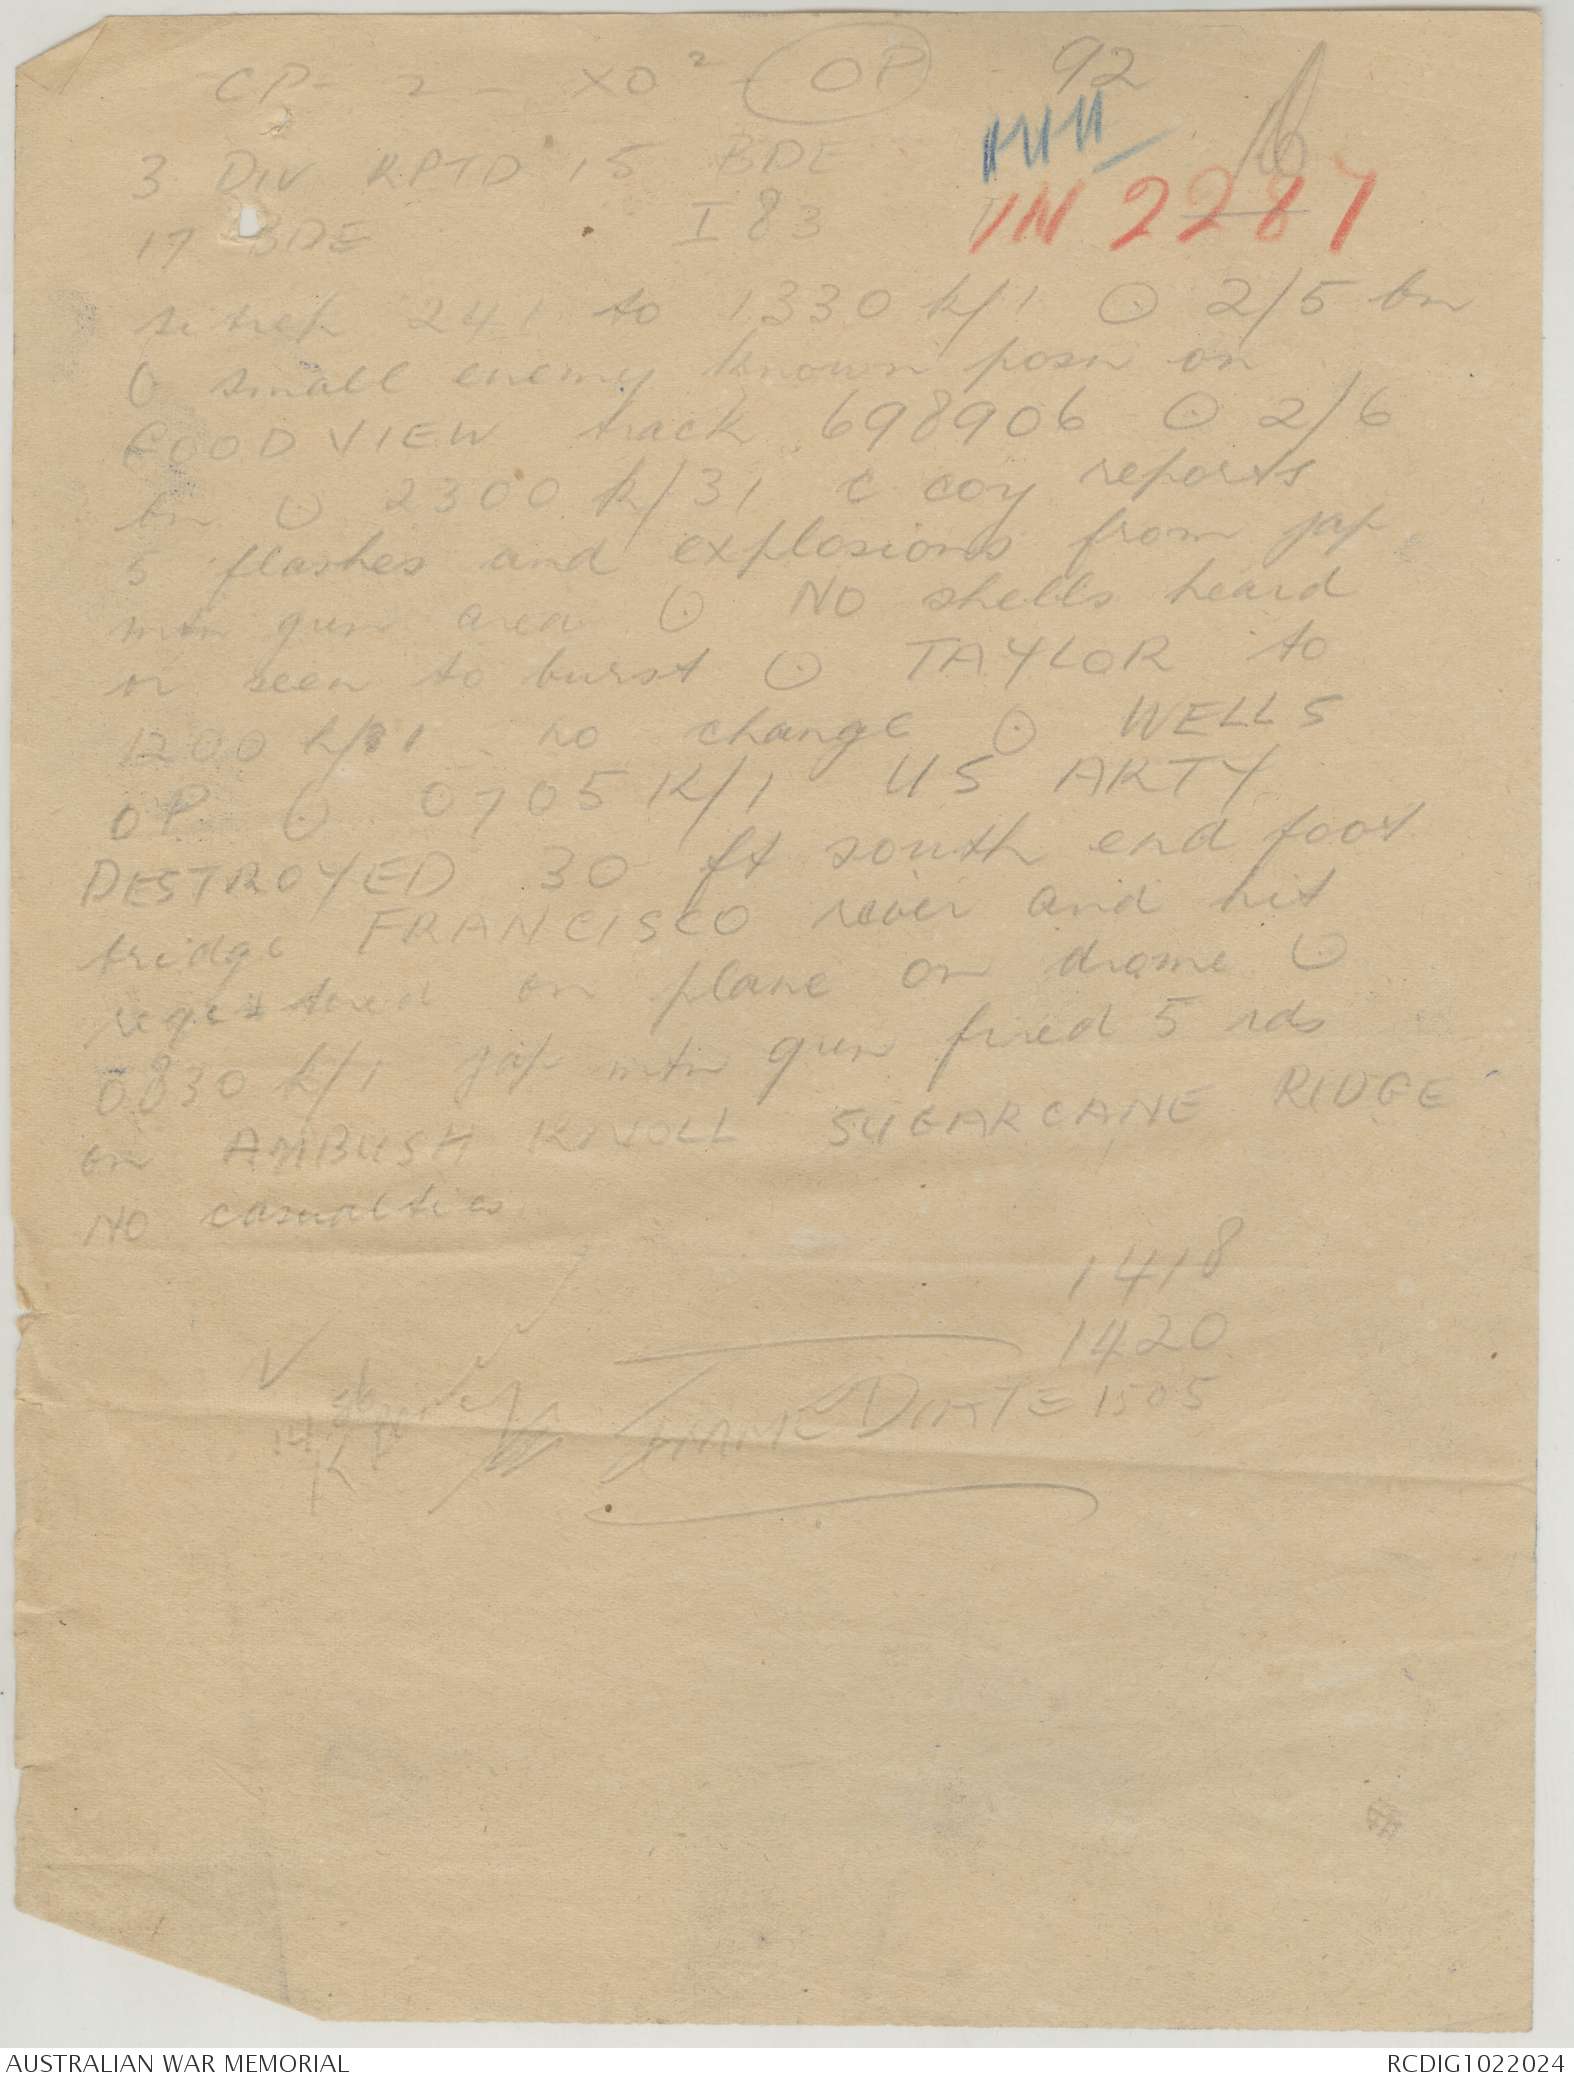 CP- 2 - XO² - OP 92
3 DIV RPTD 15 BDE
17 BDE I 83 IN 2287
sitrep 241 to 1330 k/1 ⊙ 2/5 bn
⊙ small enemy known posn on
GOODVIEW track 698906 ⊙ 2/6
bn ⊙ 2300 k/31 C coy reports
5 flashes and explosions from jap
mtn gun area ⊙ NO shells heard
or seen to burst ⊙ TAYLOR to
1200 k/1 no change ⊙ WELLS
OP ⊙ 0705 K/1 US ARTY
DESTROYED 30 ft south end foot
bridge FRANCISCO river and hit
registered on plane on drome ⊙
0830 k/1 jap mtn gun fired 5 rds
on AMBUSH KNOLL SUGARCANE RIDGE
NO casualties
1418
1420
IMMEDIATE 1505
AUSTRALIAN WAR MEMORIAL
RCDIG1022024